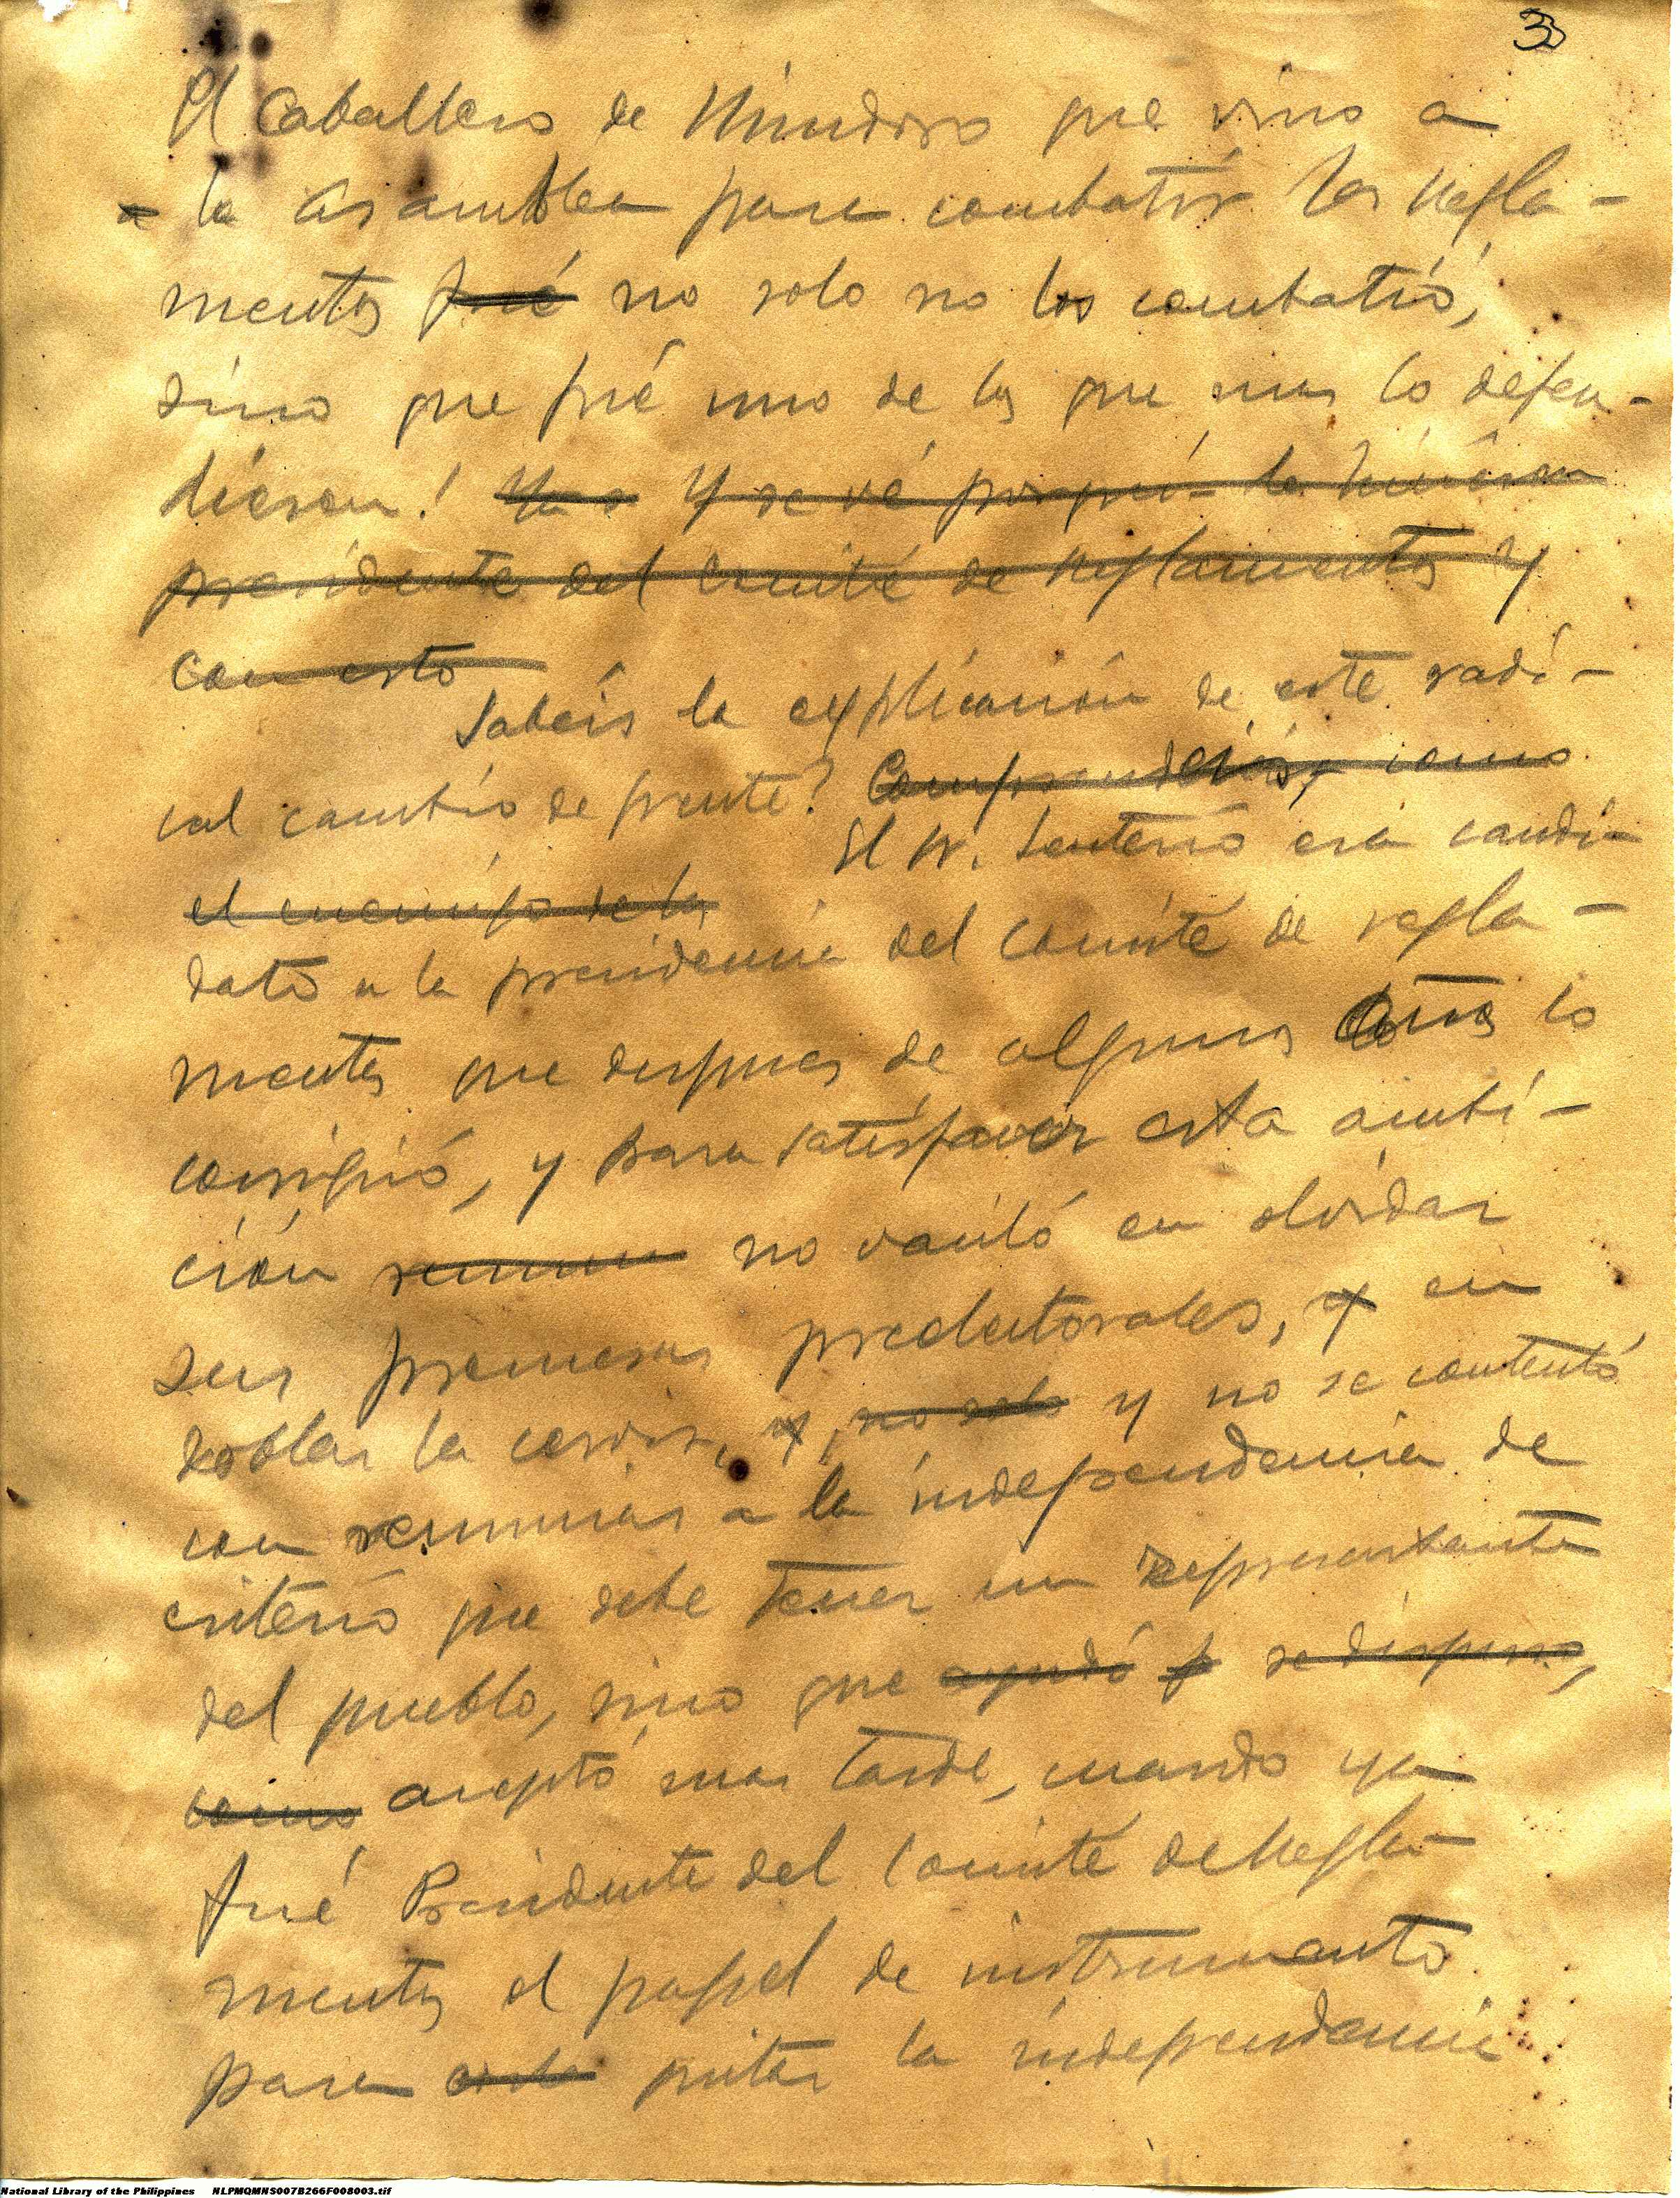 3
El Caballero de Mindoro que vino a
a la Asamblea para combatir los Regla-
mentos fué no solo no los combatió,
sino que fué uno de los que mas lo defen-
dieron! Ya s Y se vé porqué- le hicieron
presidente del Comité de Reglamentos y
con esto
Sabeis la explicación de este radi-
cal cambio de frente? Comprendereis, como
El Sr. Luterio era candi-
el enemigo de los
dato a la presidencia del Comité de regla-
mentos que despues de algunos años lo
consiguió, y para satisfacer esta ambi-
ción no vaciló en olvidar
sus promesas preelectorales, y en
doblar la cerviz, y, no solo y no se contentó
con renunciar a la independencia de
criterio que debe tener un representante
del pueblo, sino que ayudó p se dispuso,
como aceptó mas tarde, cuando ya
fué Presidente del Comité de Regla-
mentos el papel de instrumento
para quitar la independencia
National Library of the Philippines NLPMQMNS007B266F008003.tif